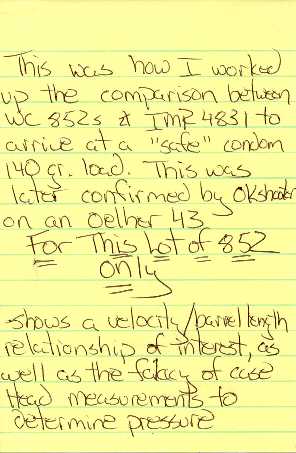 This was how I worked
up the comparison between
WC 852s & IMR 4831 to
arrive at a "safe" condom
140 gr. load. This was
later confirmed by Okshooter
on an Oelher 43
For This Lot of 852
only
shows a velocity/barrel length
relationship of interest, as
well as the falacy of case
Head measurements to
determine pressure